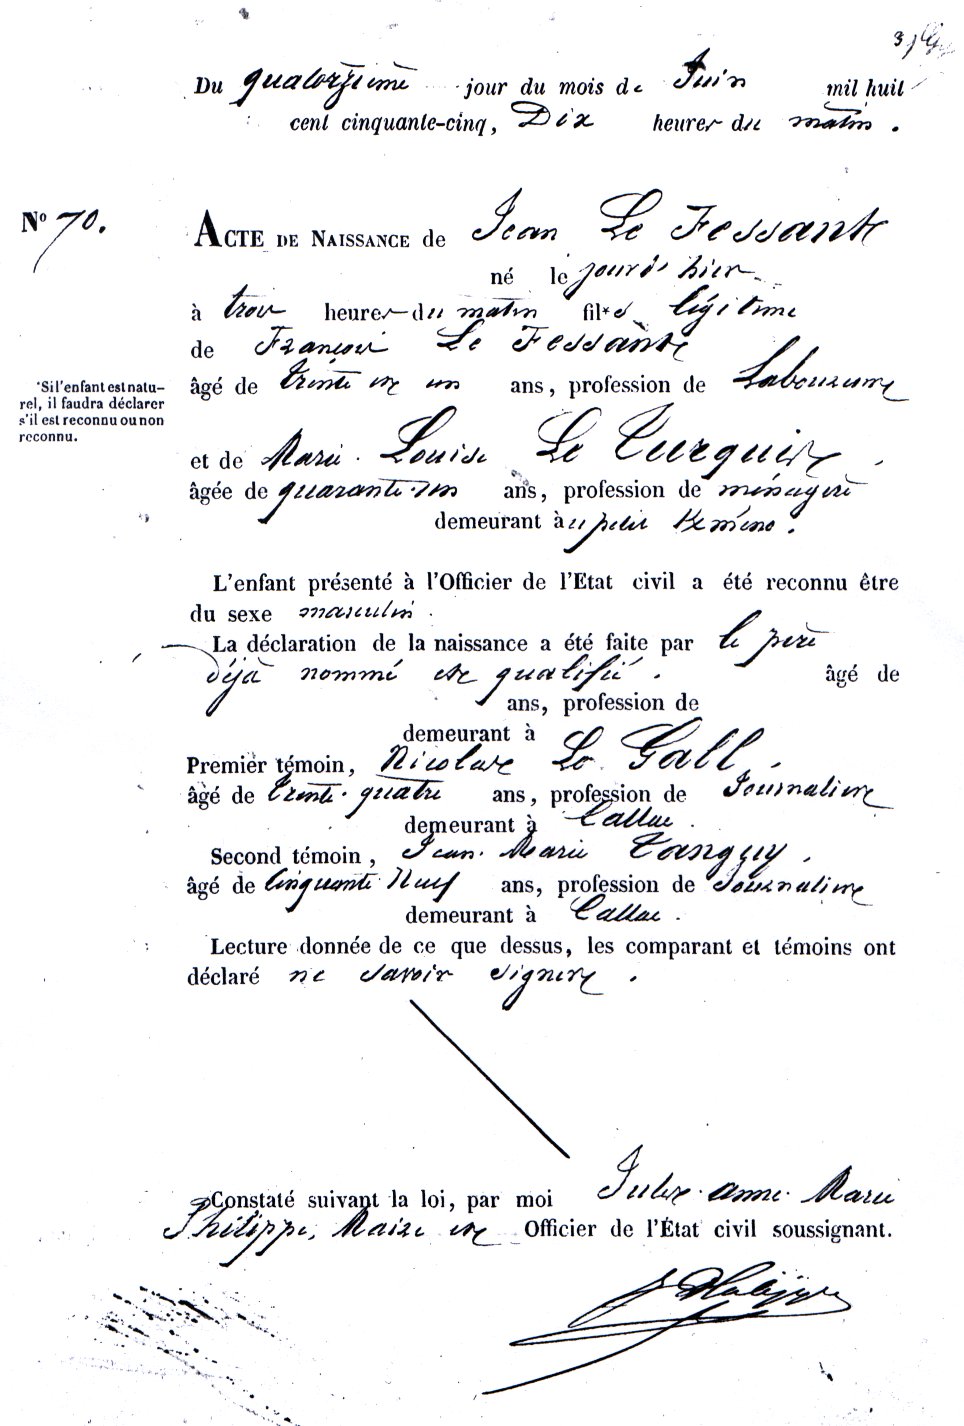 Du quatorzieme jour du mois de Juin mil huit
cent cinquante-cinq, Dix heures du matin.
N° 70.
ACTE DE NAISSANCE de Jean Le Fessant
né le jour d'hier
à trois heures du matin fil* légitime
de François Le Fessant
*Si l'enfant est natu-
rel, il faudra déclarer
s'il est reconnu ou non
reconnu.
âgé de trente et un ans, profession de Laboureur
et de Marie Louise Le Turquis
âgée de quarante un ans, profession de ménagère
demeurant à petit
L'enfant présenté à l'Officier de l'Etat civil a été reconnu être
du sexe masculin.
La déclaration de la naissance a été faite par le père
déjà nommé et qualifié. âgé de
ans, profession de
demeurant à
Premier témoin, Nicolas Le Gall,
âgé de trente quatre ans, profession de Journalier
demeurant à Callac.
Second témoin, Jean Marie Tanguy,
âgé de cinquante Neuf ans, profession de Journalier
demeurant à Callac.
Lecture donnée de ce que dessus, les comparant et témoins ont
déclaré ne savoir signer.
Constaté suivant la loi, par moi Jules anne Marie
Philippe, Maire et Officier de l'État civil soussignant.